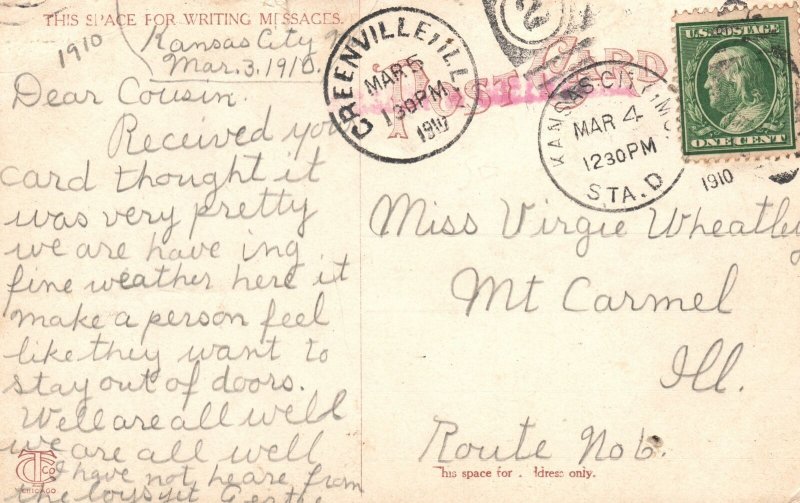 THIS SPACE FOR WRITING MESSAGES.
1910
Kansas City
Mar. 3. 1910.
Dear Cousin.
Received you
card thought it
was very pretty
we are have ing
fine weather here it
make a person feel
like they want to
stay out of doors.
Well are all well
we are all well
I have not heare from
the boys yit
CHICAGO
POST CARD
GREENVILLE, ILL.
MAR 5
130PM
1910
2
KANSAS CITY, MO.
MAR 4
1230PM
STA. D
1910
U.S. POSTAGE
ONE CENT
Miss Virgie Wheatley
Mt Carmel
Ill.
Route No 6.
his space for dress only.